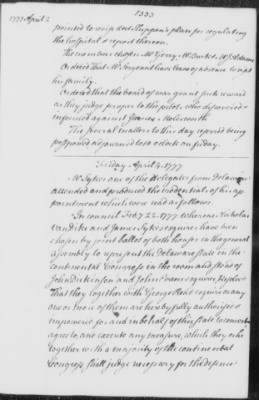 1777 April 2
1333
pointed to revise doct. Shippen's plan for regulating
the hospital & report thereon.
The members chosen Mr Gerry, Mr Burke, Mr J. Adams
Ordered That Mr Sergeant have leave of absence to visit
his family.
Ordered That the board of war grant such reward
as they judge proper to the pilot, who discovered &
informed against James Molesworth
The several matters to this day referred being
postponed Adjourned to 10 oClock on friday.
Friday April 4. 1777
Mr Sykes one of the Delegates from Delaware
attended and produced the credentials of his ap
pointment which were read as follows.
In council Feby 22. 1777 whereas Nicholas
vandike and James Sykes esquires have been
chosen by joint ballot of both houses in the general
assembly to represent the Delaware state in the
continental Congress in the room and stead of
John Dickinson and John Evans esquires, Resolved
That they together with George Read esquire or any
one or two of them are hereby fully authorised &
impowered for and in behalf of this state to concert
agree to, and execute any measure, which they or he
together with a majority of the continental
Congress shall judge necessary for the defence